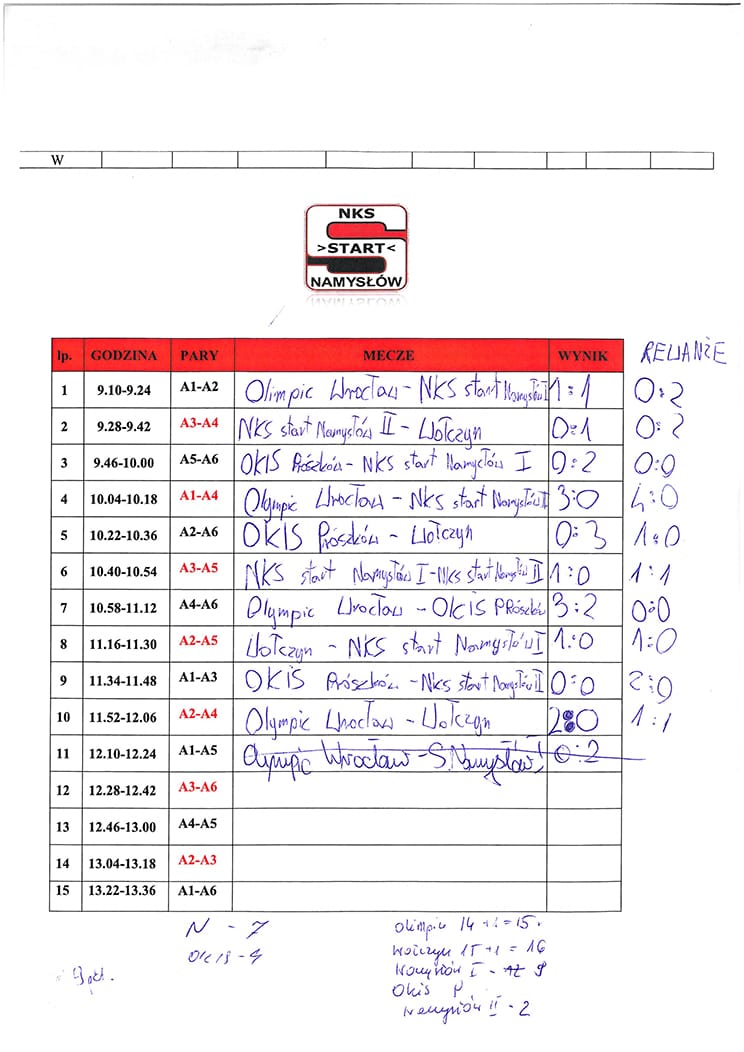 W
NKS
>START<
NAMYSŁÓW
lp. GODZINA PARY MECZE WYNIK REWANŻE
1 9.10-9.24 A1-A2 Olimpic Wrocław - NKS start Namysłów I 1:1 0:2
2 9.28-9.42 A3-A4 NKS start Namysłów II - Wołczyn 0:1 0:2
3 9.46-10.00 A5-A6 OKIS Prószków - NKS start Namysłów I 0:2 0:0
4 10.04-10.18 A1-A4 Olympic Wrocław - NKS start Namysłów II 3:0 4:0
5 10.22-10.36 A2-A6 OKIS Prószków - Wołczyn 0:3 1:0
6 10.40-10.54 A3-A5 NKS start Namysłów I - NKS start Namysłów II 1:0 1:1
7 10.58-11.12 A4-A6 Olympic Wrocław - OKiS PRószków 3:2 0:0
8 11.16-11.30 A2-A5 Wołczyn - NKS start Namysłów I 1:0 1:0
9 11.34-11.48 A1-A3 OKiS Prószków - NKS start Namysłów II 0:0 2:0
10 11.52-12.06 A2-A4 Olympic Wrocław - Wołczyn 2:0 1:1
11 12.10-12.24 A1-A5 Olympic Wrocław - S.Namysłów I 0:2
12 12.28-12.42 A3-A6
13 12.46-13.00 A4-A5
14 13.04-13.18 A2-A3
15 13.22-13.36 A1-A6
N - 7
OKIS - 4
Olimpic 14+1=15
Wołczyn 15+1=16
Namysłów I - 9
OKiS P.
Namysłów II - 2